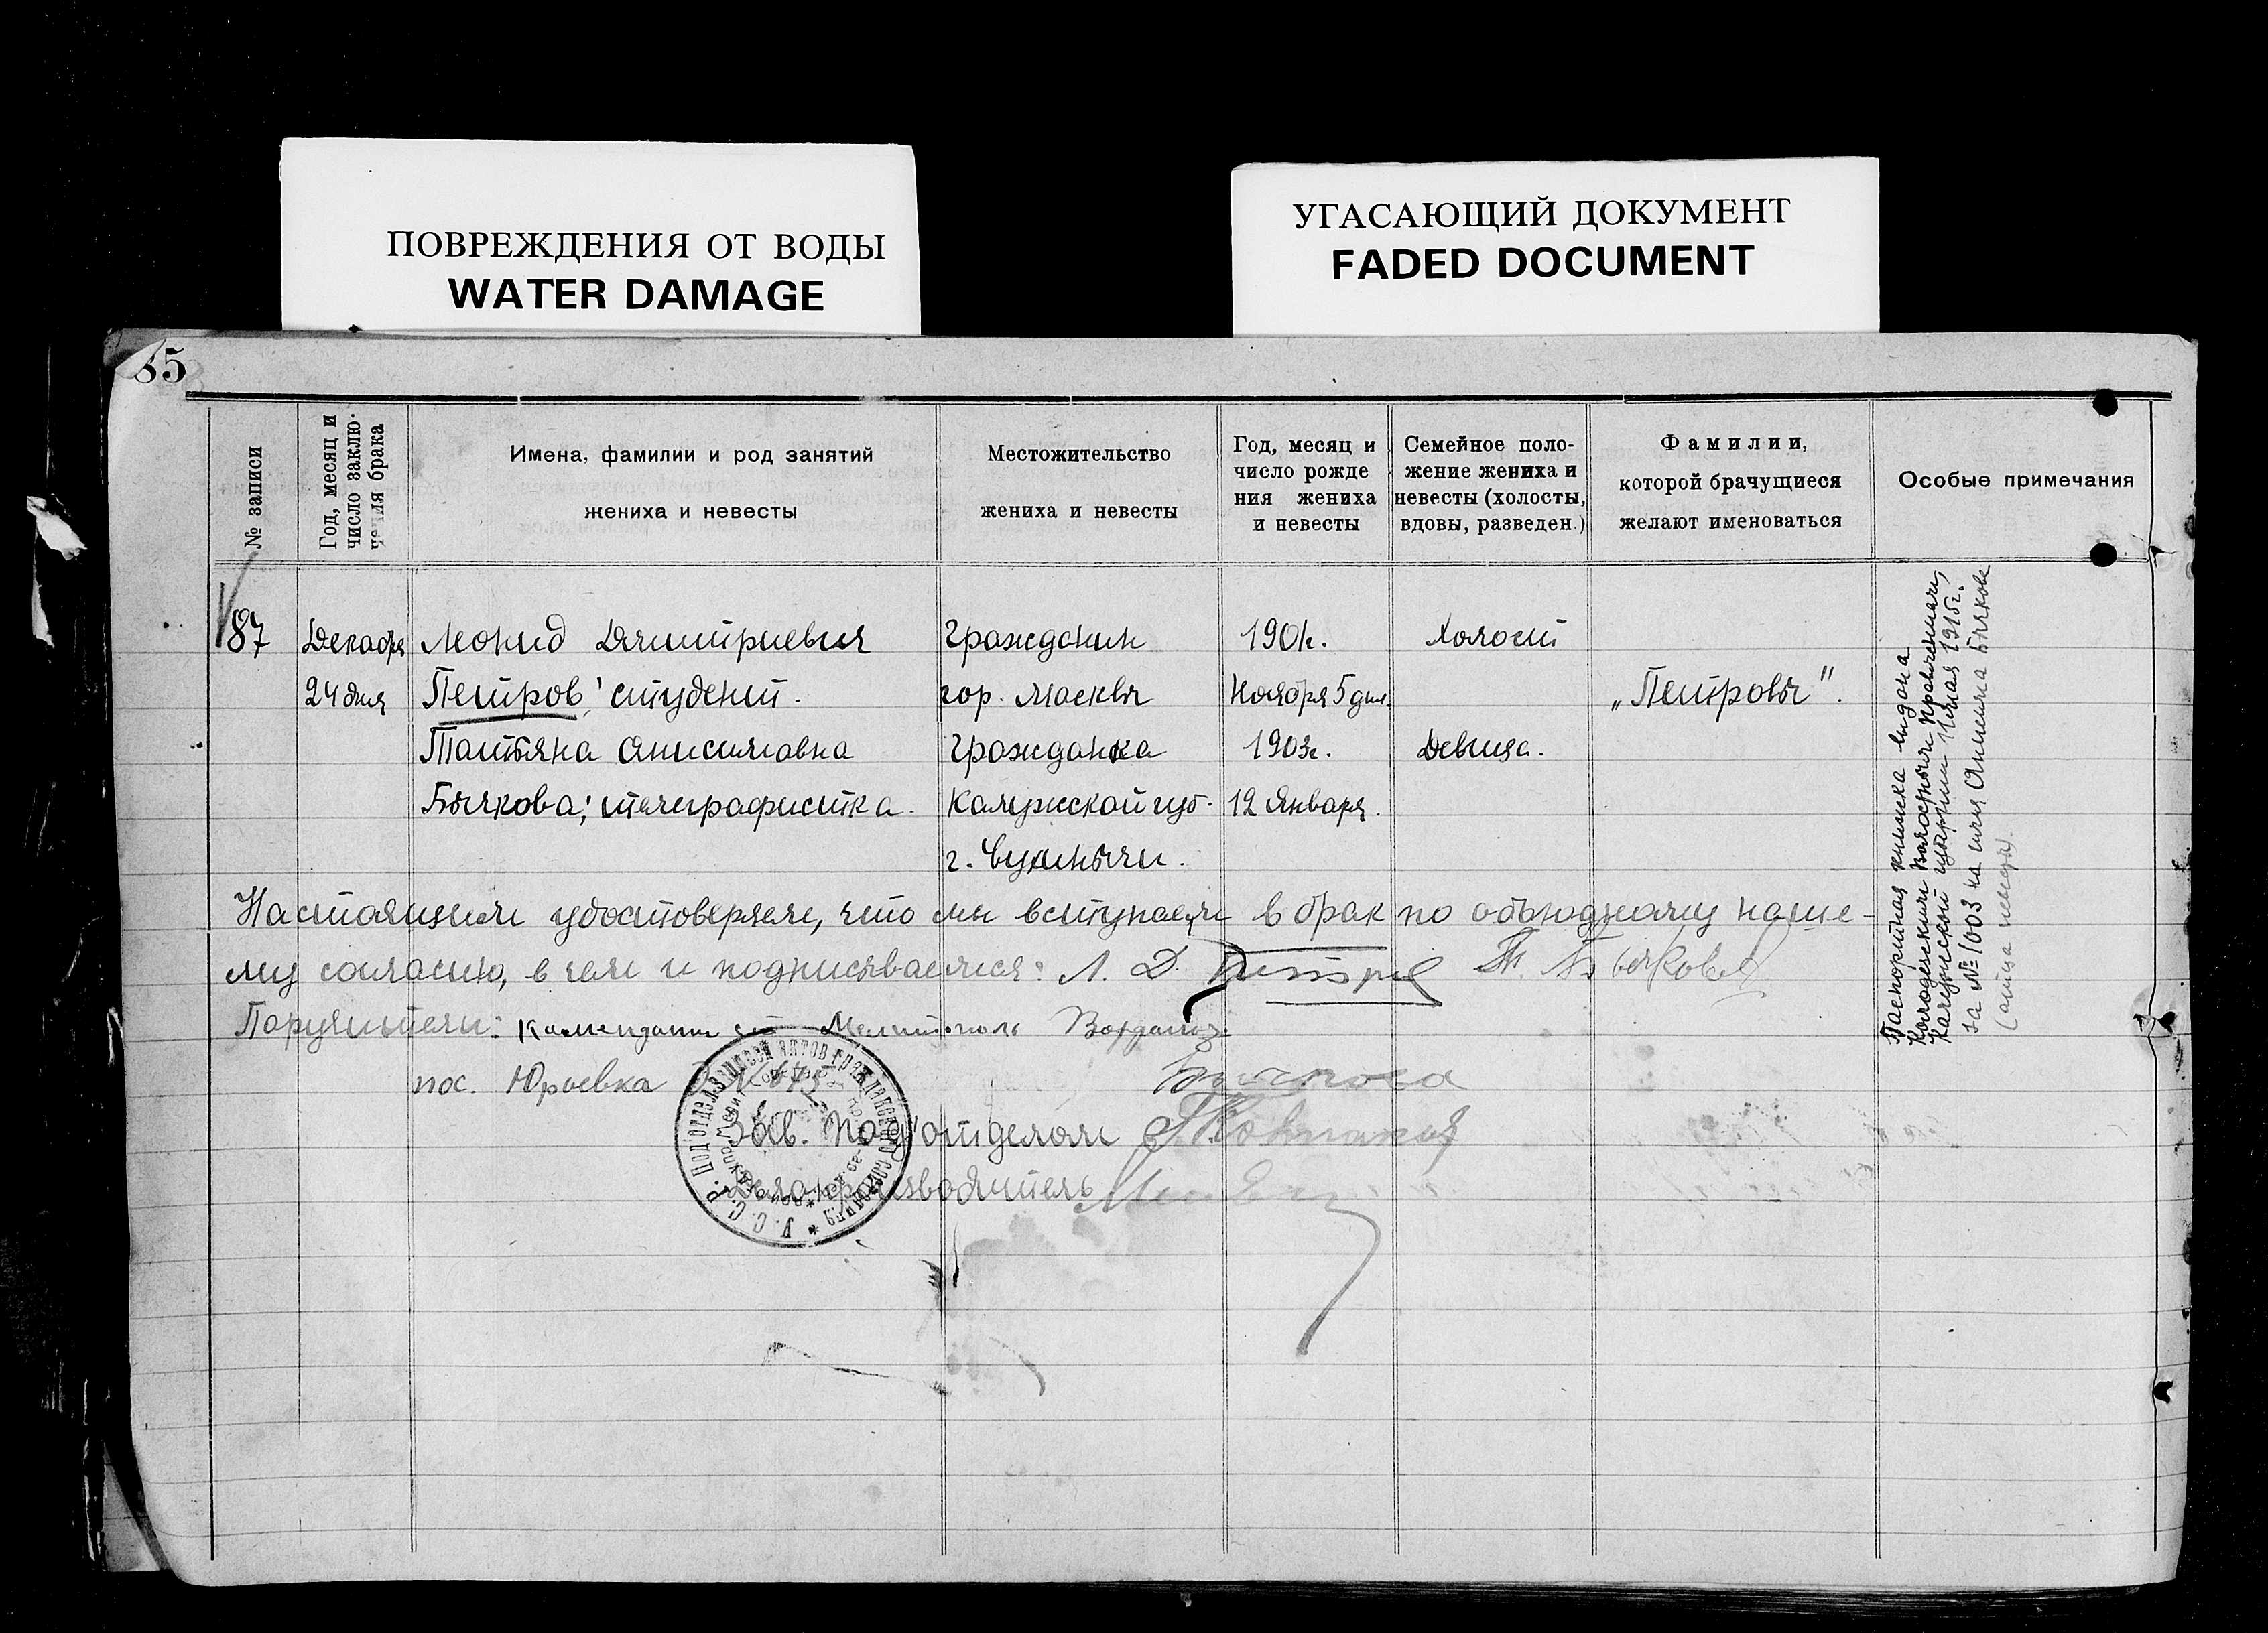 ПОВРЕЖДЕНИЯ ОТ ВОДЫ
WATER DAMAGE
УГАСАЮЩИЙ ДОКУМЕНТ
FADED DOCUMENT
35
№ записи
Год, месяц и
число заклю-
чения брака
Имена, фамилии и род занятий
жениха и невесты
Местожительство
жениха и невесты
Год, месяц и
число рожде
ния жениха
и невесты
Семейное поло-
жение жениха и
невесты (холосты,
вдовы, разведен.)
Фамилии,
которой брачущиеся
желают именоваться
Особые примечания
87 Декабря Леонид Дмитриевич Гражданин 1901г. Холост
24 дня Петров, студент. гор. Москвы Ноября 5 дня. „Петровы".
Татьяна Анисимовна Гражданка 1903г. Девица.
Бычкова; телеграфистка. Калужской губ. 12 Января.
г.
Настоящим удостоверяем, что мы вступаем в брак по обоюдному наше-
му согласию, в чем и подписываемся: Л. Д. Петров Т. Бычкова
Поручители: Комендант ст Мелитополь
пос. Юрьевка
Зав. Подотделом
Делопроизводитель
У.С.С.Р. Подотдел записи актов гражданского состояния
Паспортная книжка выдана
Волостным Правлением,
Калужской губернии 1 мая 1915г.
за № 1003 на имя Анисима Бычкова
(отца невесты).